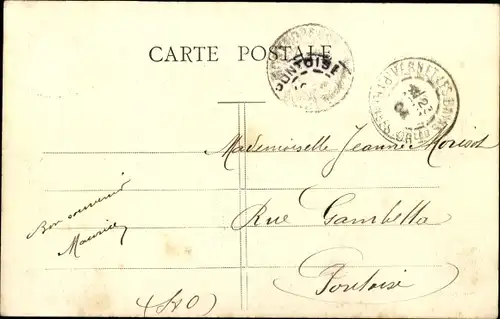 CARTE POSTALE
PONTOISE
Mademoiselle Jeanne Morisot
Rue Gambetta
Pontoise
Bon souvenir
Maurice
(S&O)